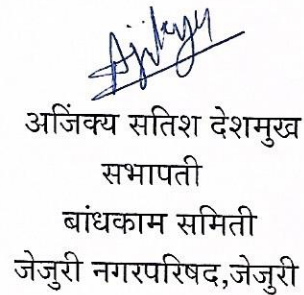 Ajikya
अजिंक्य सतिश देशमुख
सभापती
बांधकाम समिती
जेजुरी नगरपरिषद,जेजुरी